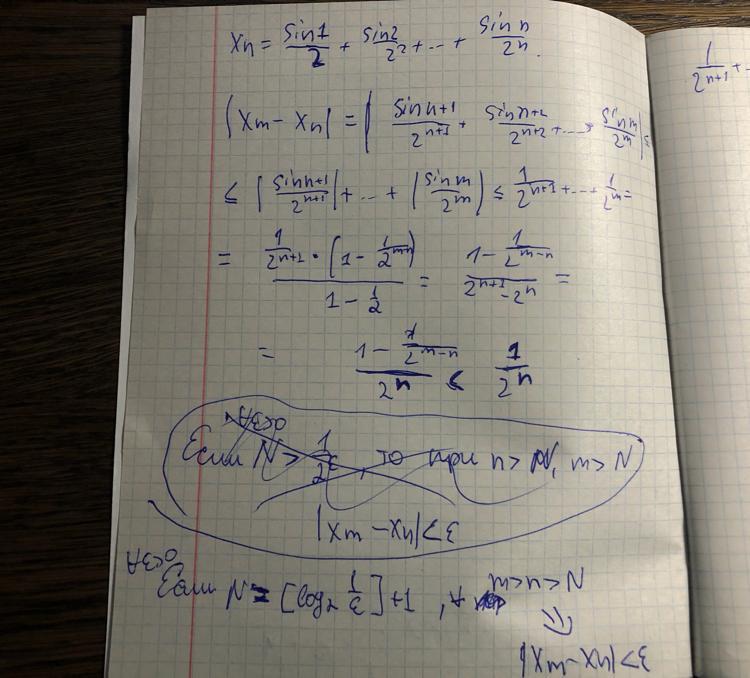 xn = sin1/2 + sin2/2² + ... + sin n/2ⁿ.
|xm - xn| = | sin n+1/2ⁿ⁺¹ + sin n+2/2ⁿ⁺² + ... + sin m/2ᵐ | ≤
≤ | sin n+1/2ⁿ⁺¹ | + ... + | sin m/2ᵐ | ≤ 1/2ⁿ⁺¹ + ... + 1/2ᵐ =
= 1/2ⁿ⁺¹ · (1 - 1/2ᵐ⁻ⁿ) / (1 - 1/2) = (1 - 1/2ᵐ⁻ⁿ) / (2ⁿ⁺¹ - 2ⁿ) =
= (1 - 1/2ᵐ⁻ⁿ) / 2ⁿ < 1/2ⁿ
Если N > 1/2^ε, то при n > N, m > N
|xm - xn| < ε
Если N = [log₂ 1/ε] + 1,
N < n < m
⇒
|xm - xn| < ε
1/2ⁿ⁺¹ + ..